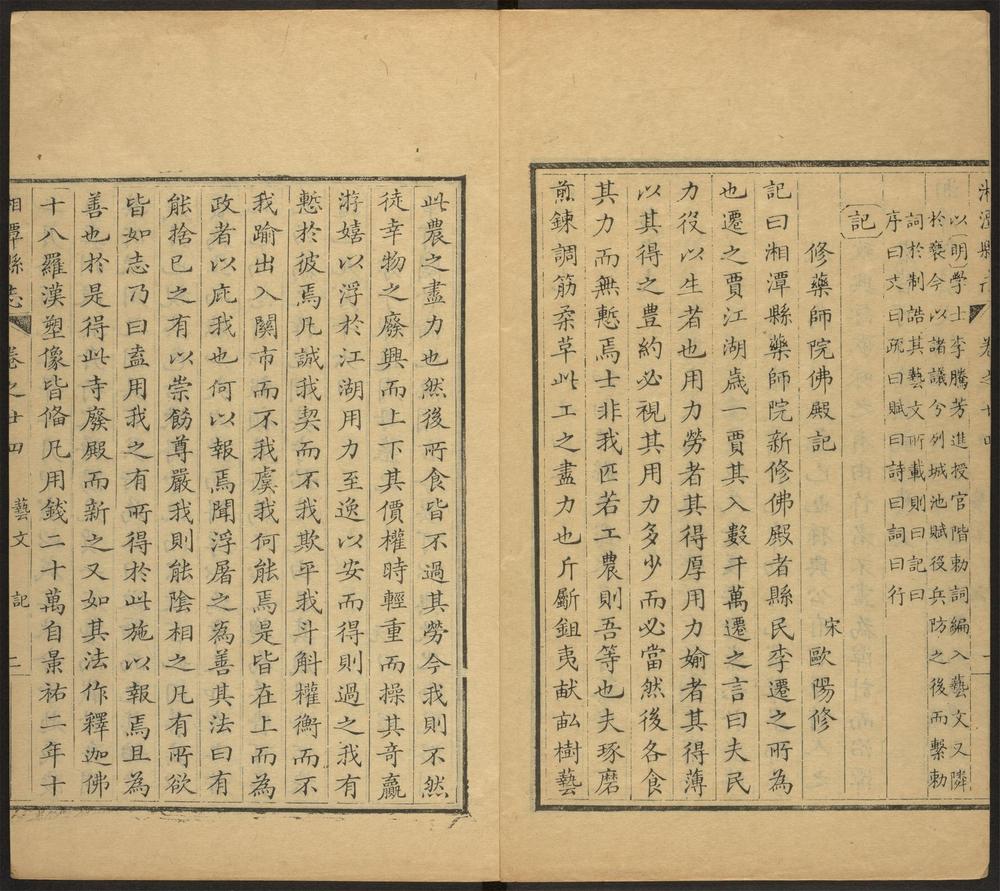 湘潭縣志 卷之廿四 一
以明學士李騰芳進授官階勅詞編入藝文又隣
於褻今以諸議分列城池賦役兵防之後而繫勅
詞於制誥其藝文所載則曰記曰
序曰文曰疏曰賦曰詩曰詞曰行
記
修藥師院佛殿記 宋歐陽修
記曰湘潭縣藥師院新修佛殿者縣民李遷之所為
也遷之賈江湖歳一賈其入數千萬遷之言曰夫民
力役以生者也用力勞者其得厚用力媮者其得薄
以其得之豊約必視其用力多少而必當然後各食
其力而無慙焉士非我匹若工農則吾等也夫琢磨
煎鍊調筋柔草此工之盡力也斤斸鉏夷献畆樹藝
此農之盡力也然後所食皆不過其勞今我則不然
徒幸物之廢興而上下其價權時輕重而操其奇贏
游嬉以浮於江湖用力至逸以安而得則過之我有
慙於彼焉凡誠我契而不我欺平我斗斛權衡而不
我踰出入關市而不我虞我何能焉是皆在上而為
政者以庇我也何以報焉聞浮屠之為善其法曰有
能捨已之有以崇飭尊嚴我則能陰相之凡有所欲
皆如志乃曰盍用我之有所得於此施以報焉且為
善也於是得此寺廢殿而新之又如其法作釋迦佛
十八羅漢塑像皆偹凡用錢二十萬自景祐二年十
相潭縣志 卷之廿四 藝文 記 二